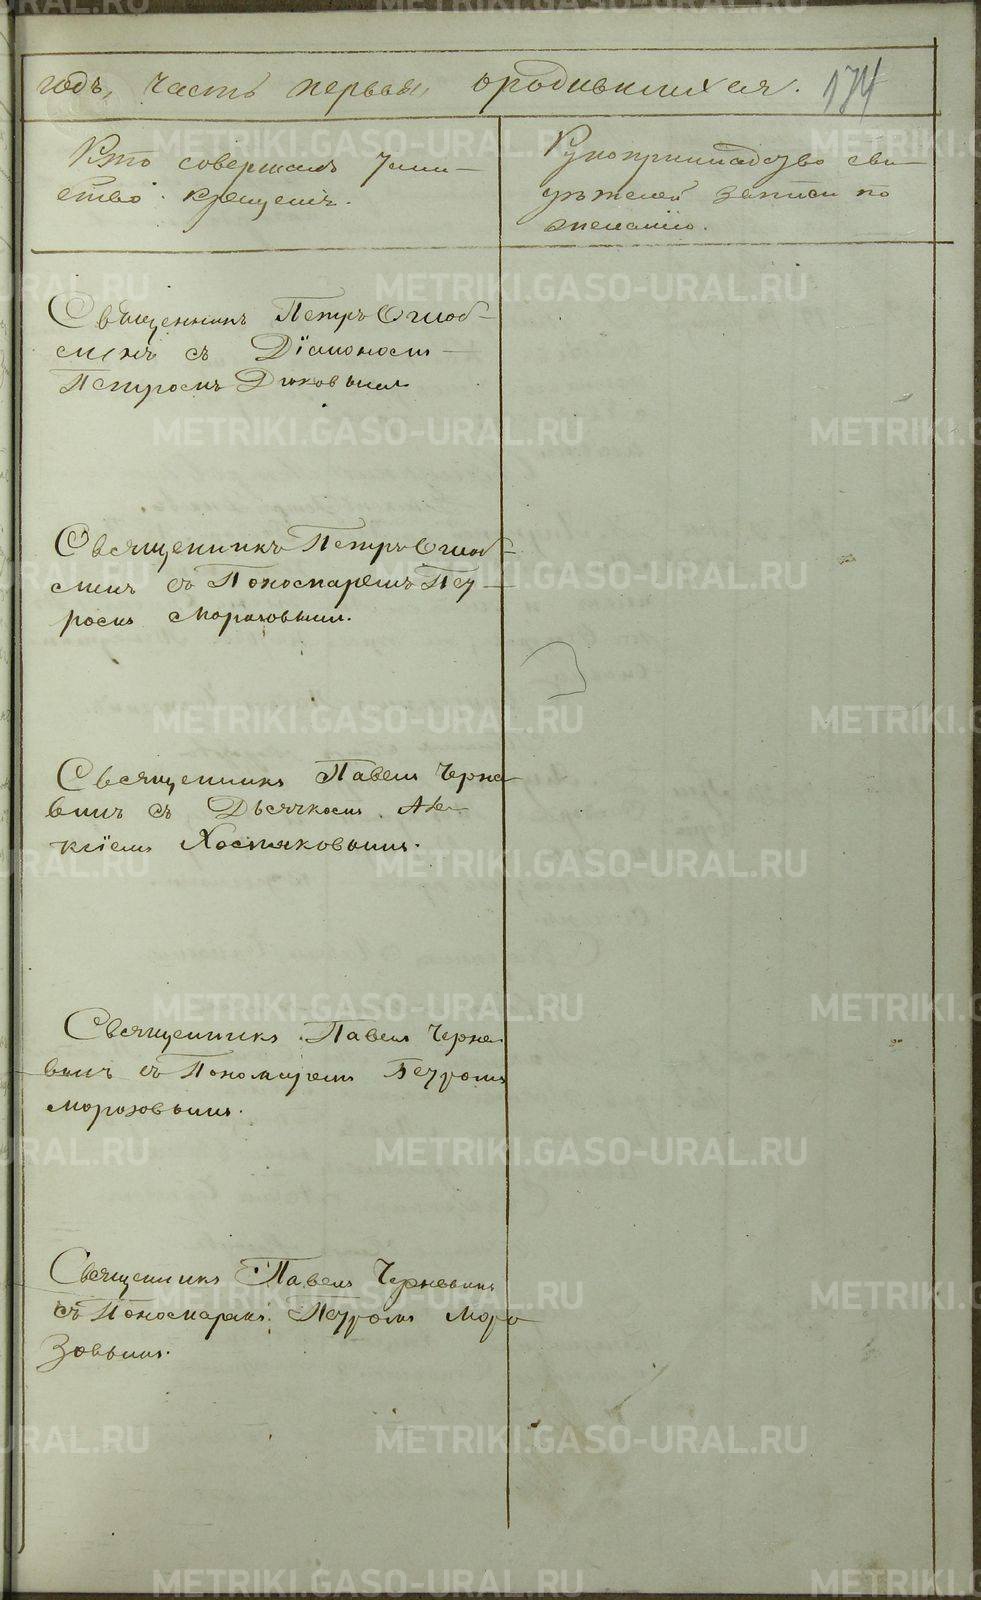 годъ, часть первая, ородившихся. 174
Кто совершалъ таин-
ство крещенія.
Рукоприкладство сви-
дѣтелей записи по
желанію.
Священникъ Петръ
съ Діакономъ
Петромъ Дюковымъ
Священникъ Петръ
съ Пономаремъ Пет-
ромъ Морозовымъ.
Священникъ Павелъ Черня-
винъ съ Дьячкомъ Але-
ксіемъ Хостяковымъ.
Священникъ Павелъ Черня-
винъ съ Пономаремъ Петромъ
Морозовымъ.
Священникъ Павелъ Чернявинъ
съ Пономаремъ Петромъ Моро
зовымъ.
METRIKI.GASO-URAL.RU